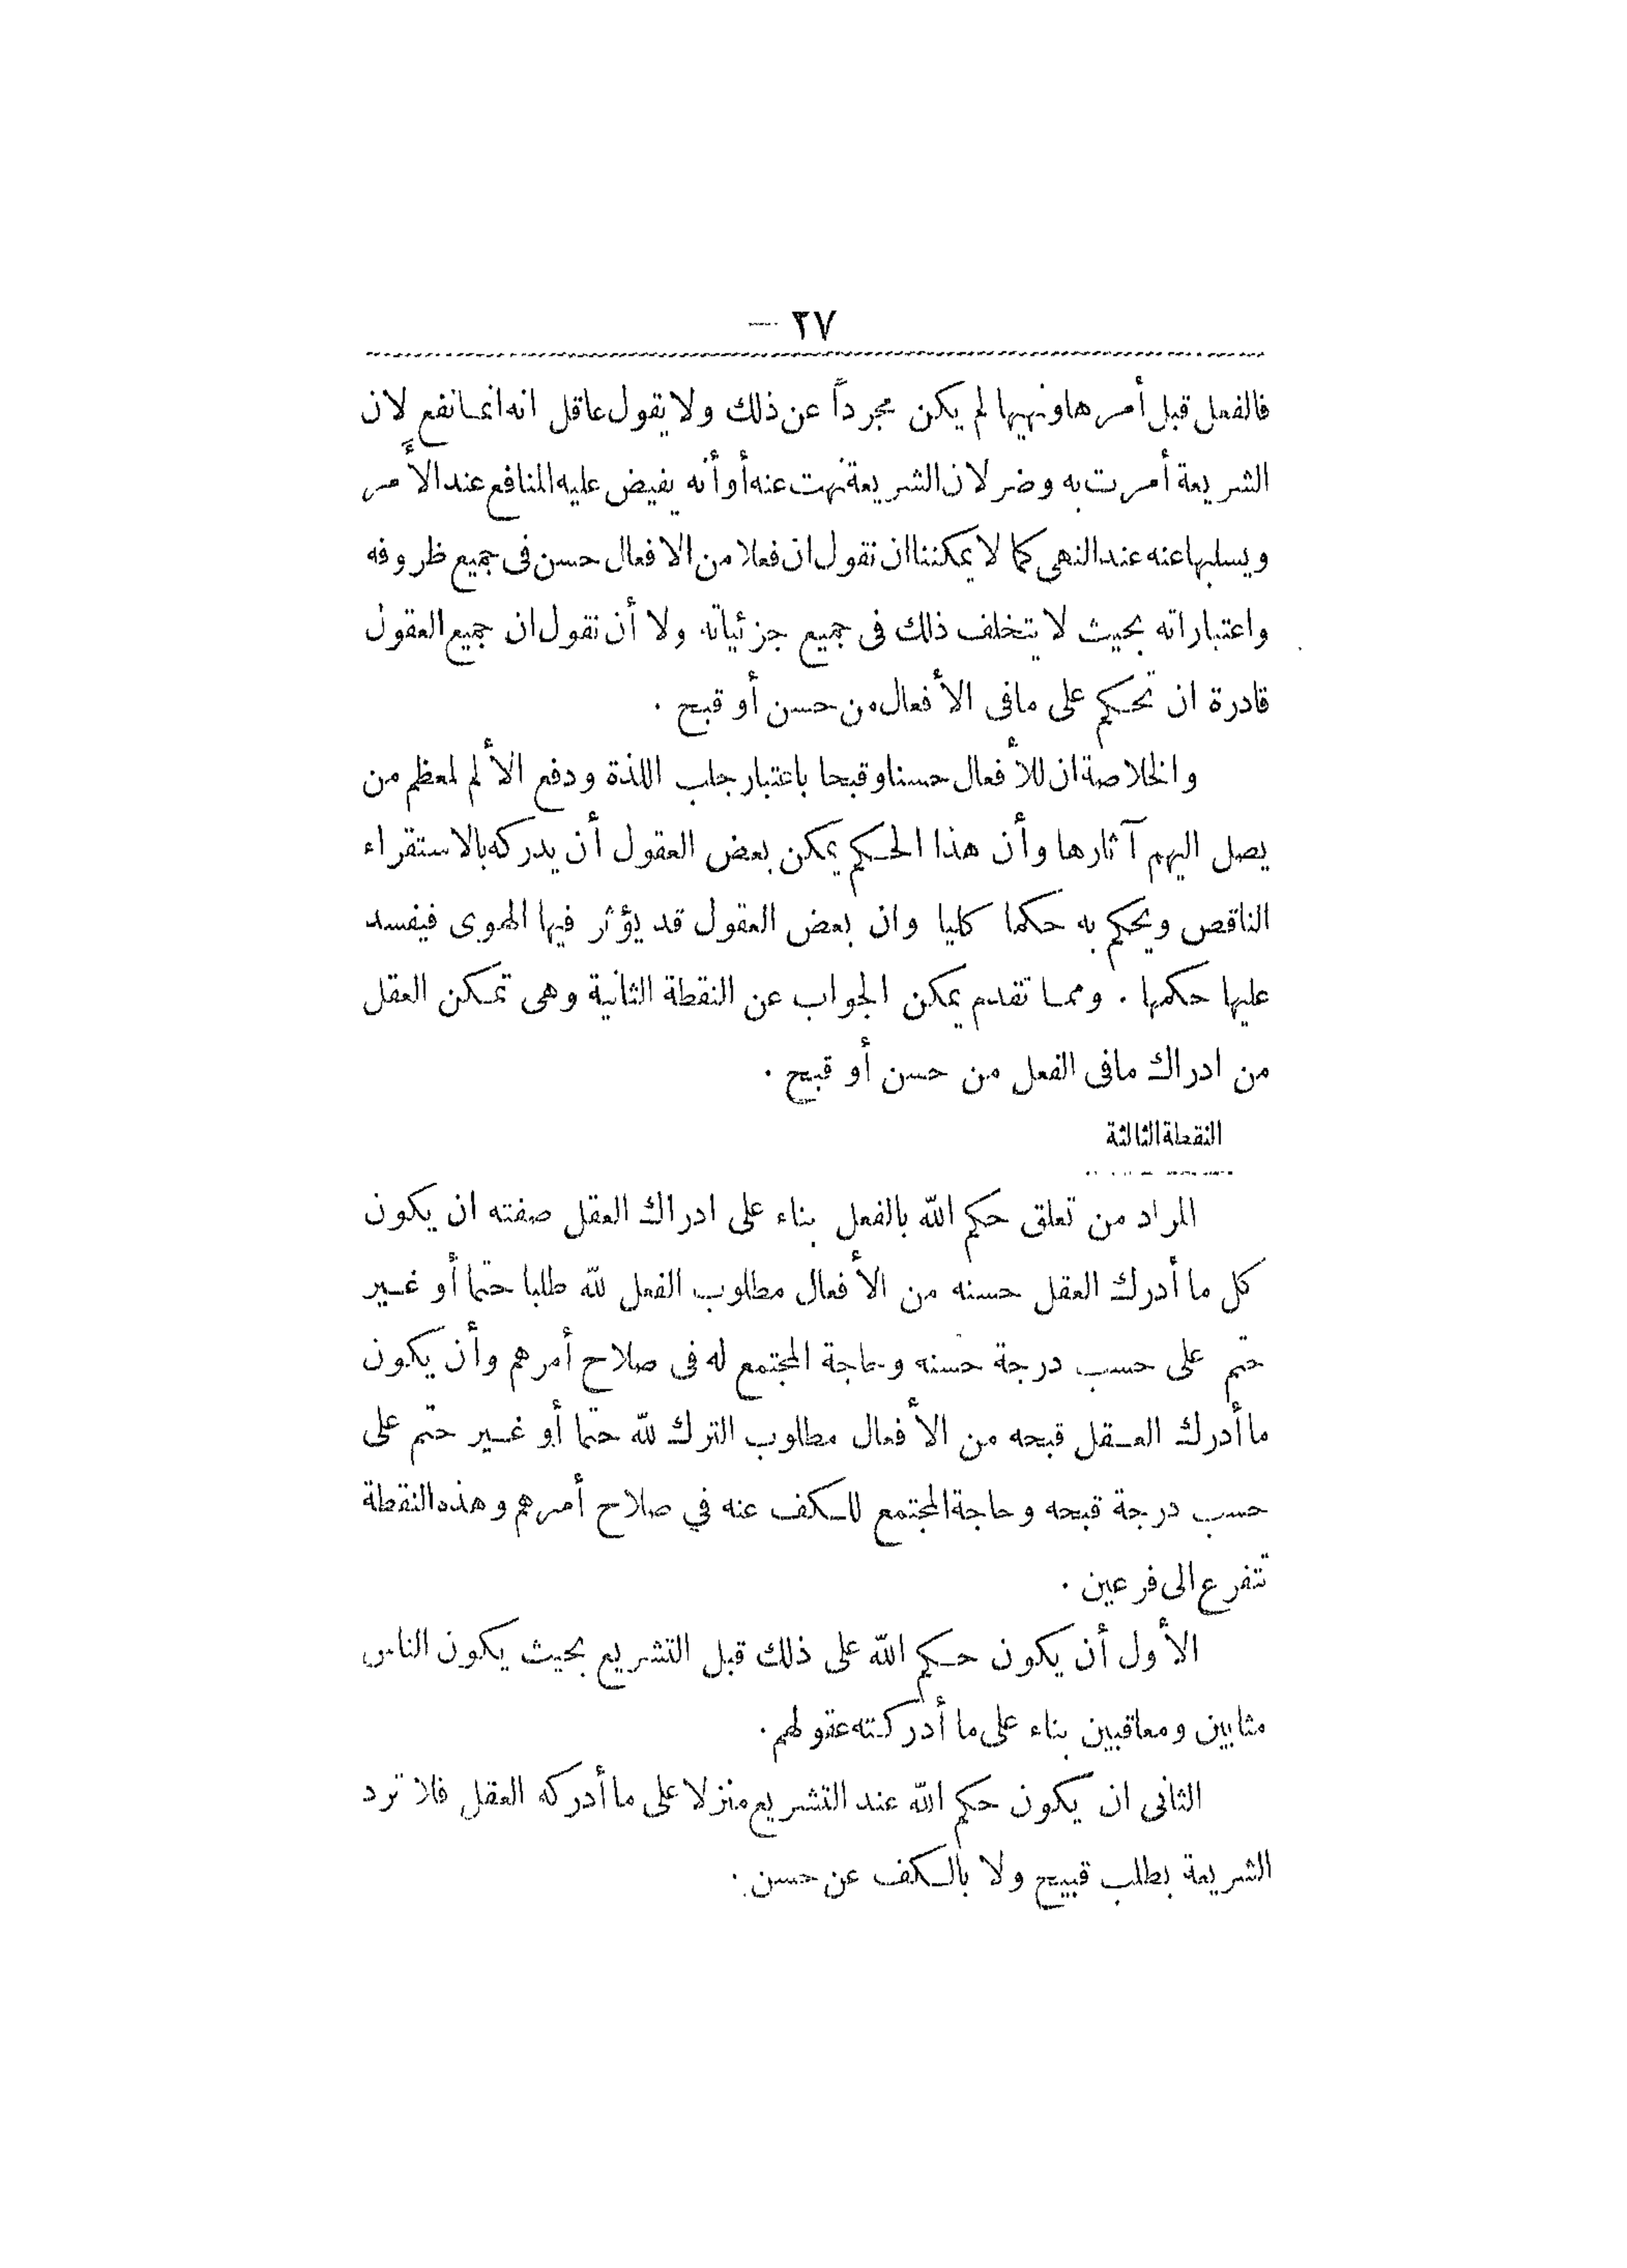 ٢٧ —
فالفعل قبل أمرها ونهيها لم يكن مجرداً عن ذلك ولا يقول عاقل انه انما نفع لان
الشريعة أمرت به وضر لان الشريعة نهت عنه أو أنه يفيض عليه المنافع عند الأمر
ويسلبها عنه عند النهى كما لا يمكننا ان نقول ان فعلا من الافعال حسن فى جميع ظروفه
واعتباراته بحيث لا يتخلف ذلك فى جميع جزئياته ولا أن نقول ان جميع العقول
قادرة ان تحكم على مافى الأفعال من حسن أو قبح .
والخلاصة ان للأفعال حسنا وقبحا باعتبار جلب اللذة ودفع الألم لمعظم من
يصل اليهم آثارها وأن هذا الحكم يمكن بعض العقول أن يدركه بالاستقراء
الناقص ويحكم به حكما كليا وان بعض العقول قد يؤثر فيها الهوى فيفسد
عليها حكمها . ومما تقدم يمكن الجواب عن النقطة الثانية وهى تمكن العقل
من ادراك مافى الفعل من حسن أو قبح .
النقطة الثالثة
المراد من تعلق حكم الله بالفعل بناء على ادراك العقل صفته ان يكون
كل ما أدرك العقل حسنه من الأفعال مطلوب الفعل لله طلبا حتما أو غير
حتم على حسب درجة حسنه وحاجة المجتمع له فى صلاح أمرهم وأن يكون
ما أدرك العقل قبحه من الأفعال مطلوب الترك لله حتما أو غير حتم على
حسب درجة قبحه وحاجة المجتمع للكف عنه في صلاح أمرهم وهذه النقطة
تتفرع الى فرعين .
الأول أن يكون حكم الله على ذلك قبل التشريع بحيث يكون الناس
مثابين ومعاقبين بناء على ما أدركته عقولهم .
الثانى ان يكون حكم الله عند التشريع منزلا على ما أدركه العقل فلا ترد
الشريعة بطلب قبيح ولا بالكف عن حسن .